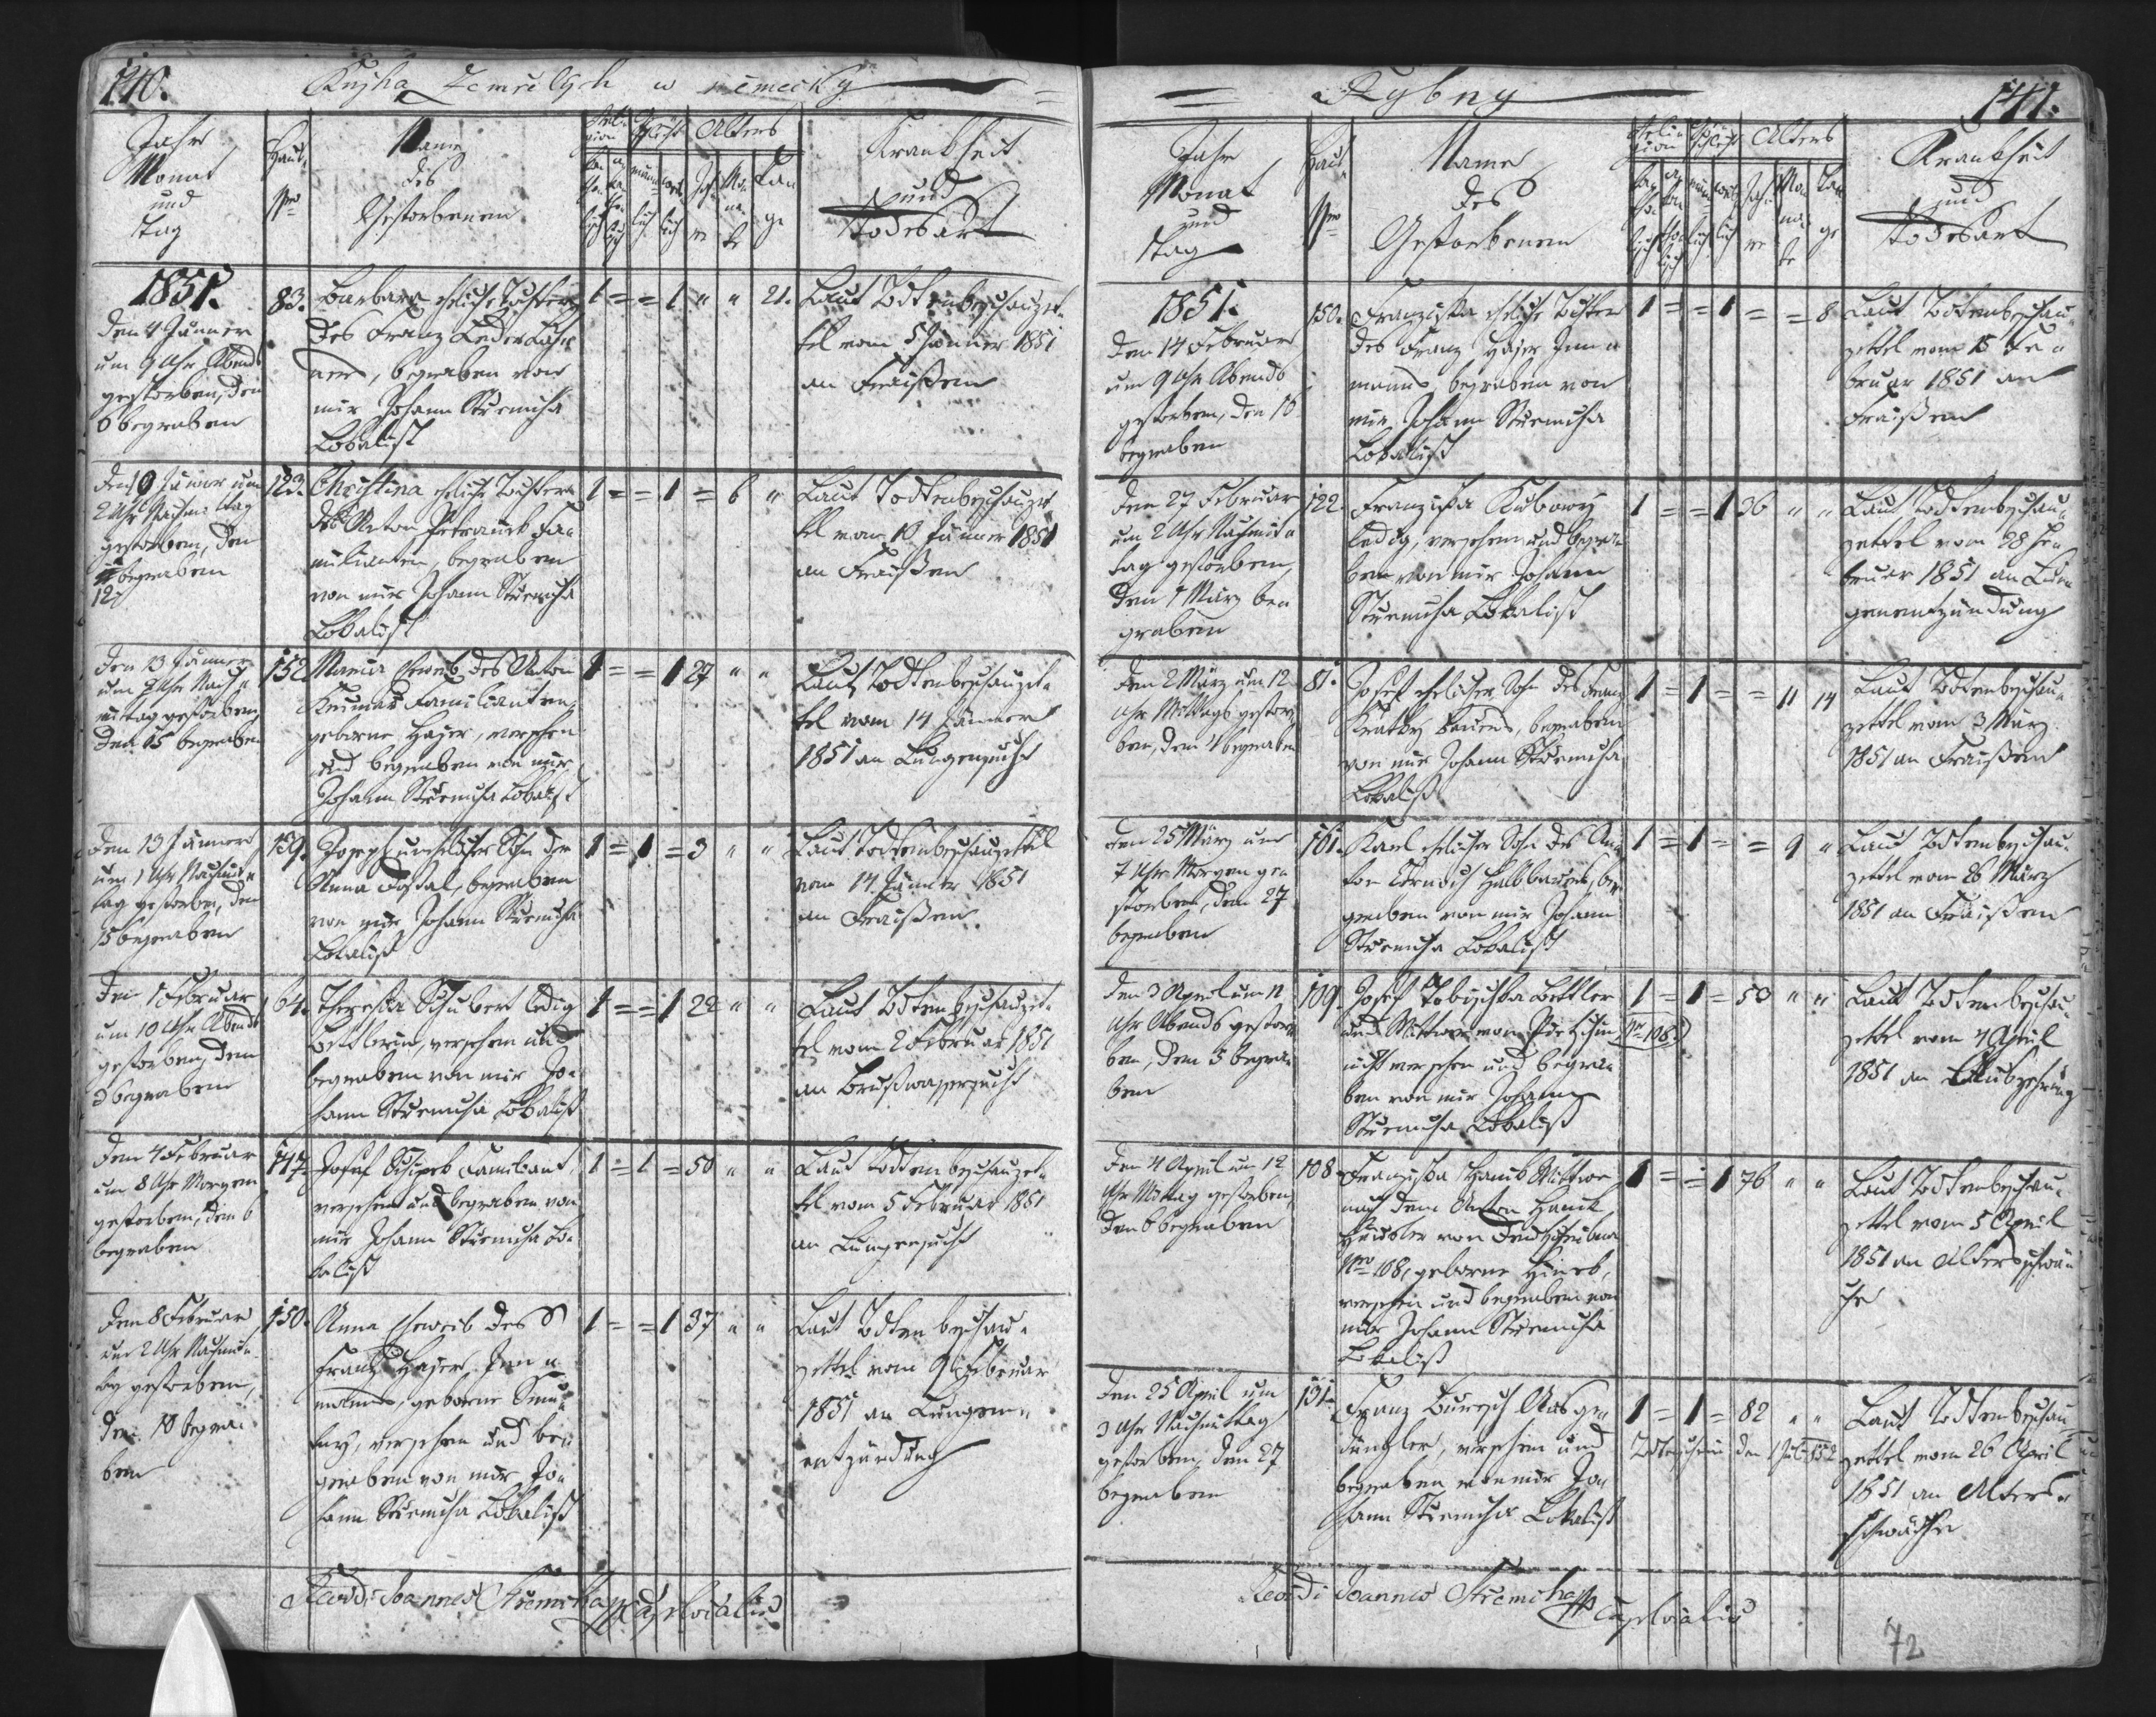 140.
Knjha Zemřelých w německy
Jahr Monat und Tag
Haus Nro
Name des Gestorbenen
Religion
Geschlecht
Alters
Krankheit und Todesart
1851.
den 4 Jänner
um 9 Uhr Abends
gestorben, den
6 begraben
83.
Barbara eheliche Tochter
des Franz
begraben von
mir Johann Stremcha
Lokalist
1 = = 1 " " 21.
Laut Todtenbeschauzet-
tel vom 5 Jänner 1851
an Fraißen
um
2 Uhr Nachmittag
gestorben, den
begraben
12
123.
Christina eheliche Tochter
des Anton Fa-
milianten, begraben
von mir Johann Stremcha
Lokalist
1 = = 1 = 6 "
Laut Todtenbeschauzet-
tel vom Jänner 1851
an Fraißen
den 13 Jänner
um Uhr Nach-
mittag gestorben,
den 15 begraben
152
Maria Eheweib des Anton
Familianten,
geborne Hajer, versehen
und begraben von mir
Johann Stremcha Lokalist
1 = = 1 27 " "
Laut Todtenbeschauzet-
tel vom 14 Jänner
1851 an Lungensucht
den 13 Jänner
um 1 Uhr Nachmit-
tag gestorben, den
15 begraben
139.
Joseph unehelicher Sohn der
Anna begraben
von mir Johann Stremcha
Lokalist
1 = 1 = 3 " "
Laut Todtenbeschauzettel
vom 14. Jänner 1851
an Fraißen
den 1 Februar
um 10 Uhr Abends
gestorben, den
3 begraben
64.
Theresia Schubert ledig
Bettlerin, versehen und
begraben von mir Jo-
hann Stremcha Lokalist
1 = = 1 22 " "
Laut Todtenbeschauzet-
tel vom 2 Februar 1851
an Brustwassersucht
den 4 Februar
um 8 Uhr Morgens
gestorben, den 6
begraben
147
Josef Familiant,
versehen und begraben von
mir Johann Stremcha Lo-
kalist
1 = 1 = 50 " "
Laut Todtenbeschauzet-
tel vom 5 Februar 1851
an Lungensucht
den 8 Februar
um 2 Uhr Nachmit-
tag gestorben,
den 10 begra-
ben
150.
Anna Eheweib des
Franz Hajer, Inn-
manns, geborne
versehen und be-
graben von mir Jo-
hann Stremcha Lokalist
1 = = 1 37 " "
Laut Todtenbeschau-
zettel vom 9 Februar
1851 an Lungen-
entzündung
Joannes Stremcha Capel. localis
141.
Rybny
Jahr Monat und Tag
Haus Nro
Name des Gestorbenen
Religion
Geschlecht
Alters
Krankheit und Todesart
1851.
den 14 Februar
um 9 Uhr Abends
gestorben, den 16
begraben
150.
Franziska eheliche Tochter
des Franz Hajer Inn-
manns, begraben von
mir Johann Stremcha
Lokalist
1 = = 1 = = 8
Laut Todtenbeschau-
zettel vom 15 Fe-
bruar 1851 an
Fraißen
den 27 Februar
um 2 Uhr Nachmit-
tag gestorben,
den 1 März be-
graben
122.
Franziska Kubowy
ledig, versehen und begra-
ben von mir Johann
Stremcha Lokalist
1 = = 1 36 " "
Laut Todtenbeschau-
zettel vom 28 Fe-
bruar 1851 an Lun-
genentzündung
den 2 März um 12
Uhr Mittags gestor-
ben, den 4 begraben
81.
Josef ehelicher Sohn des Franz
Kratky Bauers, begraben
von mir Johann Stremcha
Lokalist
1 = 1 = = 11 14
Laut Todtenbeschau-
zettel vom 3 März
1851 an Fraißen
den 25 März um
7 Uhr Morgen ge-
storben, den 27
begraben
161.
Karl ehelicher Sohn des An-
ton Halbbauers, be-
graben von mir Johann
Stremcha Lokalist
1 = 1 = = 9 "
Laut Todtenbeschau-
zettel vom 26 März
1851 an Fraißen
den 3 April um 11
Uhr Abends gestor-
ben, den 5 begra-
ben
109.
Josef Tobischka Bettler
und Wittwer von
nicht versehen und begra-
ben von mir Johann
Stremcha Lokalist
1 = 1 = 53 " "
Nro 108.
Laut Todtenbeschau-
zettel vom 4 April
1851 an
den 4 April um 12
Uhr Mittag gestorben,
den 6 begraben
108
Franziska Hanik Wittwe
nach dem Anton Hanik
Häusler von
Nro 108, geborne
versehen und begraben von
mir Johann Stremcha
Lokalist
1 = = 1 76 " "
Laut Todtenbeschau-
zettel vom 5 April
1851 an Altersschwä-
che
den 25 April um
3 Uhr Nachmittag
gestorben, den 27
begraben
131.
Franz Buresch Ausge-
dingler, versehen und
begraben von mir Jo-
hann Stremcha Lokalist
1 = 1 = 82 " "
Todtenschein den
Laut Todtenbeschau-
zettel vom 26 April
1851 an Alters-
schwäche
Joannes Stremcha Capel. localis
72